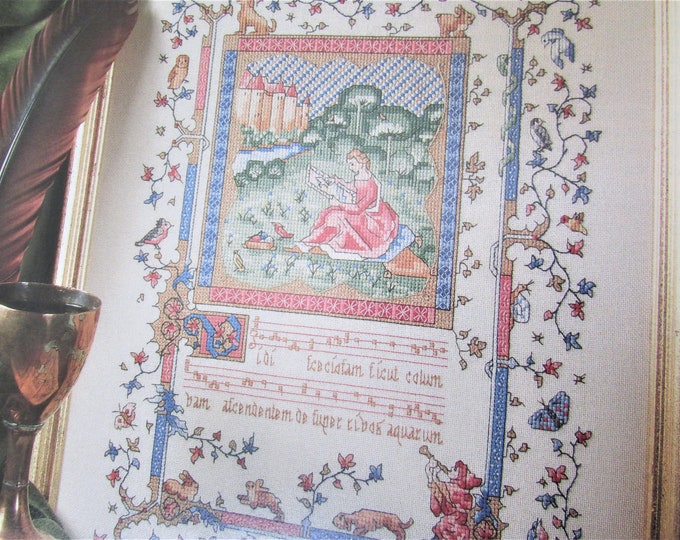 Vidi ſpecioſam ſicut colum
bam aſcendentem de ſuper rivos aquarum